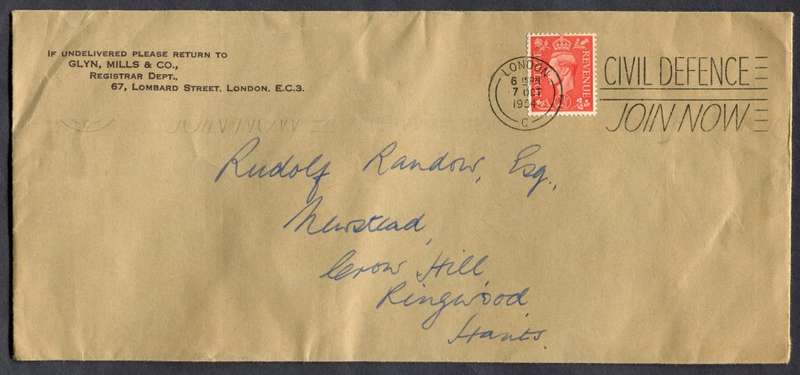 IF UNDELIVERED PLEASE RETURN TO
GLYN, MILLS & CO.,
REGISTRAR DEPT.,
67, LOMBARD STREET, LONDON, E.C.3.
LONDON
7 OCT
1954
C
REVENUE
CIVIL DEFENCE
JOIN NOW
JOIN NOW
Rudolf Randow, Esq,
Newstead,
Crow Hill
Ringwood
Hants.